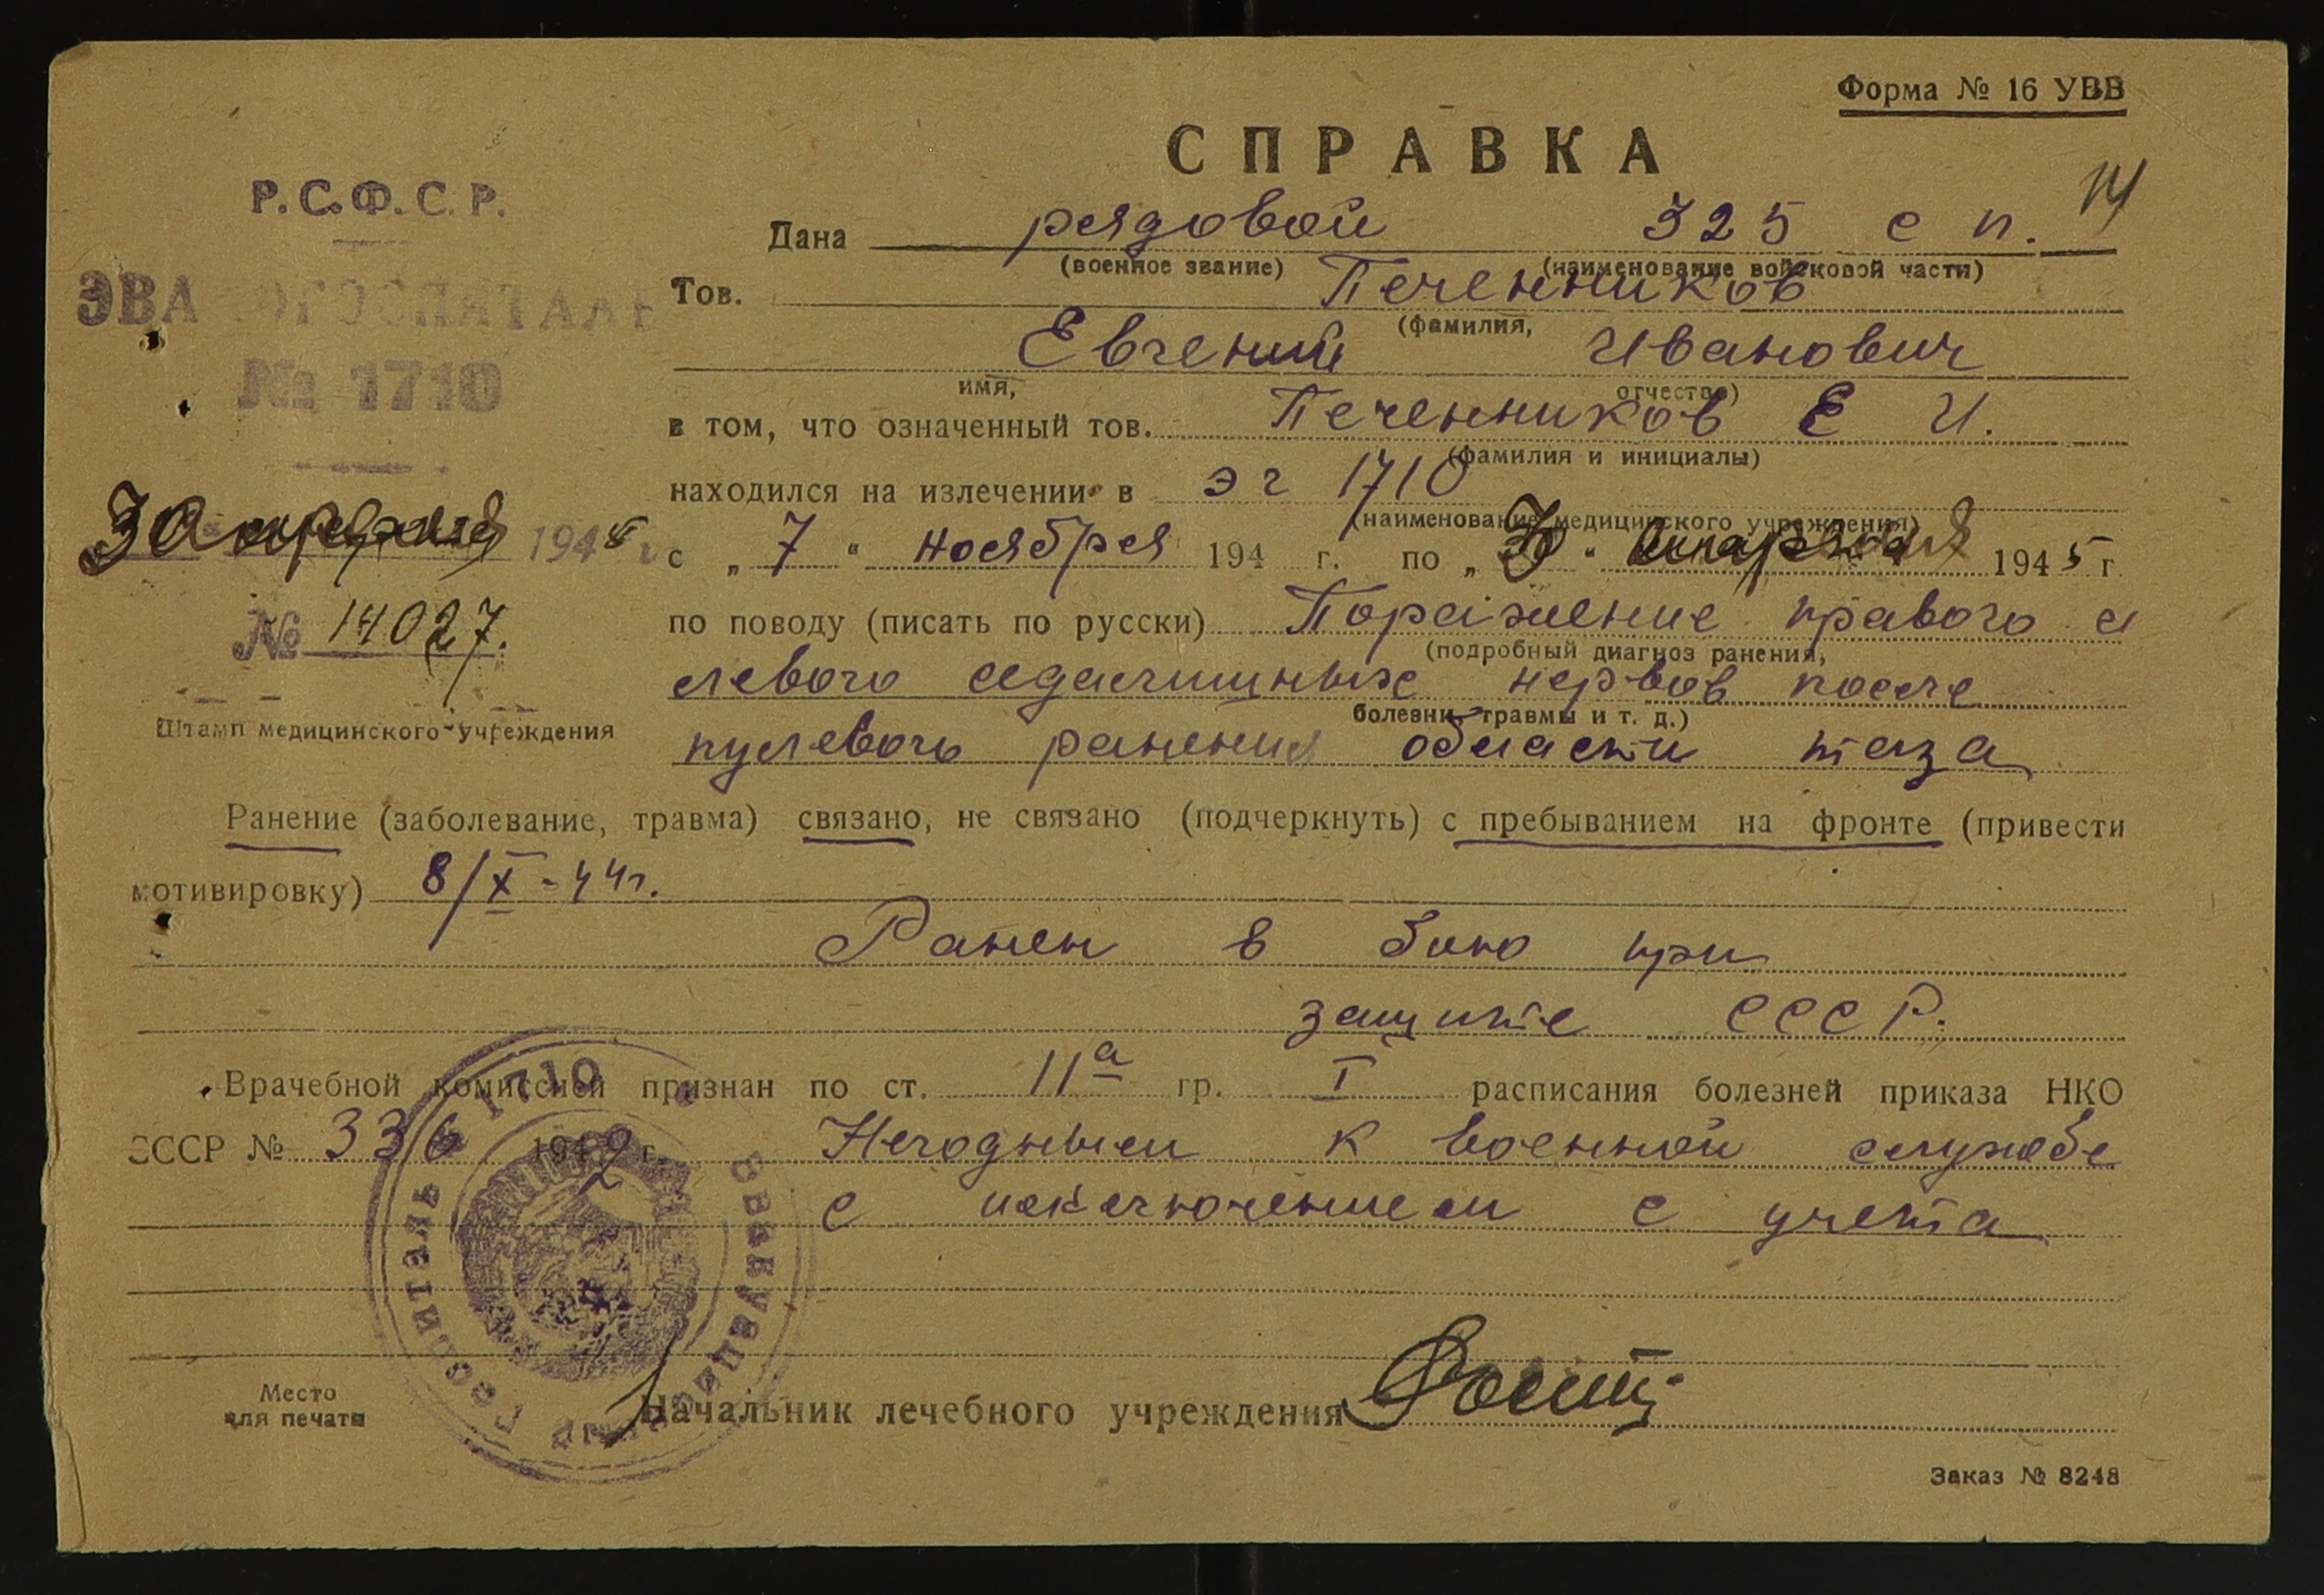 Форма № 16 УВВ
СПРАВКА
14
Р.С.Ф.С.Р.
ЭВАКОГОСПИТАЛЬ
№ 1710
30 апреля 1945 г
№ 14027.
Штамп медицинского учреждения
Дана рядовой 325 с п.
(военное звание) (наименование войсковой части)
Тов. Печенников
(фамилия,
Евгений Иванович
имя, отчество)
в том, что означенный тов. Печенников Е И.
(фамилия и инициалы)
находился на излечении в эг 1710
(наименование медицинского учреждения)
с „ 7 “ ноября 194 г. по „ 30 “ 1945 г.
по поводу (писать по русски) Поражение правого и
(подробный диагноз ранения,
левого седалищных нервов после
болезни, травмы и т. д.)
пулевого ранения области таза
Ранение (заболевание, травма) связано, не связано (подчеркнуть) с пребыванием на фронте (привести
мотивировку) 8/X-44г.
Ранен в бою при
защите СССР.
Врачебной комиссией признан по ст. 11а гр. I расписания болезней приказа НКО
СССР № 336 1942 г. Негодным к военной службе
с исключением с учета
Эвакуационный Госпиталь 1710
Место
для печати
Начальник лечебного учреждения
Заказ № 8248